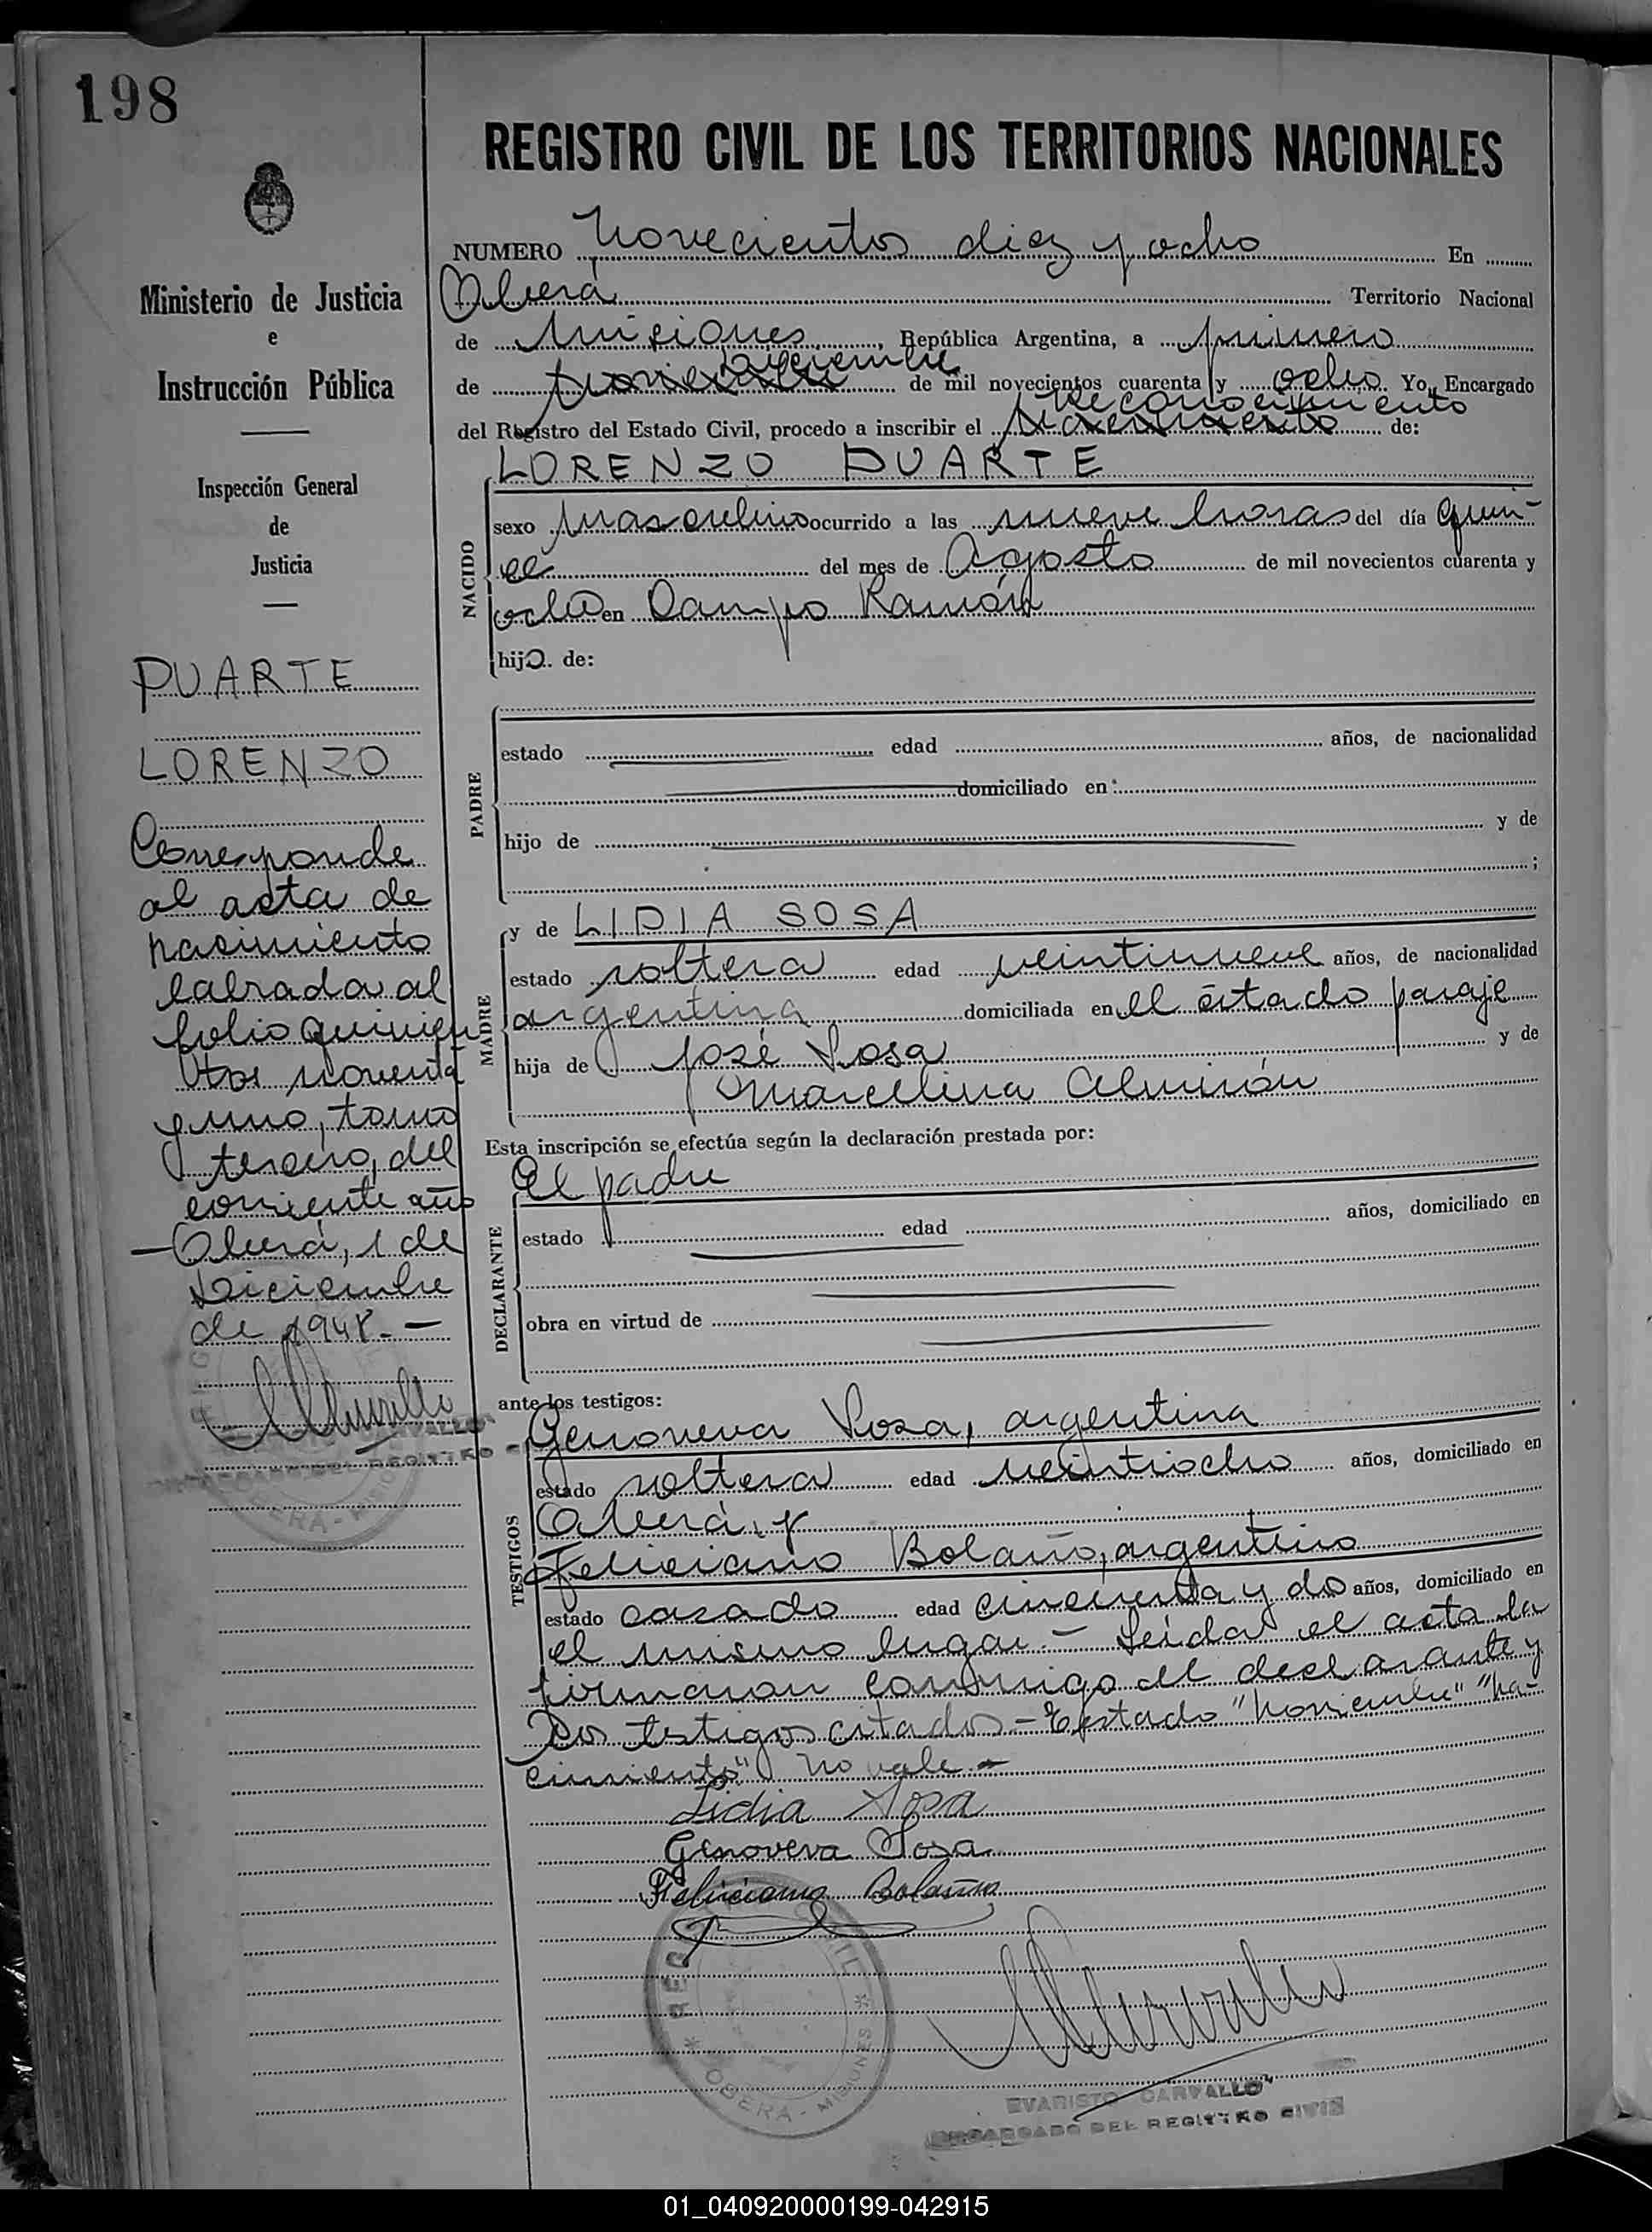 198
REGISTRO CIVIL DE LOS TERRITORIOS NACIONALES
Ministerio de Justicia
e
Instrucción Pública
Inspección General
de
Justicia
DUARTE
LORENZO
Corresponde
al acta de
nacimiento
labrada al
folio quinien
tos noventa
y uno, tomo
tercero, del
corriente año
— Oberá, 1 de
Diciembre
de 1948. —
NUMERO novecientos diez y ocho En
Oberá Territorio Nacional
de Misiones, República Argentina, a primero
Diciembre
de noviembre de mil novecientos cuarenta y ocho. Yo, Encargado
Reconocimiento
del Registro del Estado Civil, procedo a inscribir el Nacimiento de:
NACIDO
LORENZO DUARTE
sexo masculino ocurrido a las nueve horas del día quin-
ce del mes de Agosto de mil novecientos cuarenta y
ocho en Campo Ramón
hijo. de:
PADRE
estado edad años, de nacionalidad
domiciliado en:
hijo de y de
;
MADRE
y de LIDIA SOSA
estado soltera edad veintinueve años, de nacionalidad
argentina domiciliada en el citado paraje
hija de José Sosa y de
Marcelina Almirón
Esta inscripción se efectúa según la declaración prestada por:
El padre
DECLARANTE
estado edad años, domiciliado en
obra en virtud de
ante los testigos:
TESTIGOS
Genoveva Sosa, argentina
estado soltera edad veintiocho años, domiciliado en
Oberá, y
Feliciano Bolaño, argentino
estado casado edad cincuenta y dos años, domiciliado en
el mismo lugar. — Leída el acta la
firmaron conmigo el declarante y
los testigos citados — Testado "noviembre" "na-
cimiento" no vale —
Lidia Sosa
Genoveva Sosa
Feliciano Bolaño
REG CIVIL
* OBERA - MISIONES *
EVARISTO CARVALLO
ENCARGADO DEL REGISTRO CIVIL
01_040920000199-042915